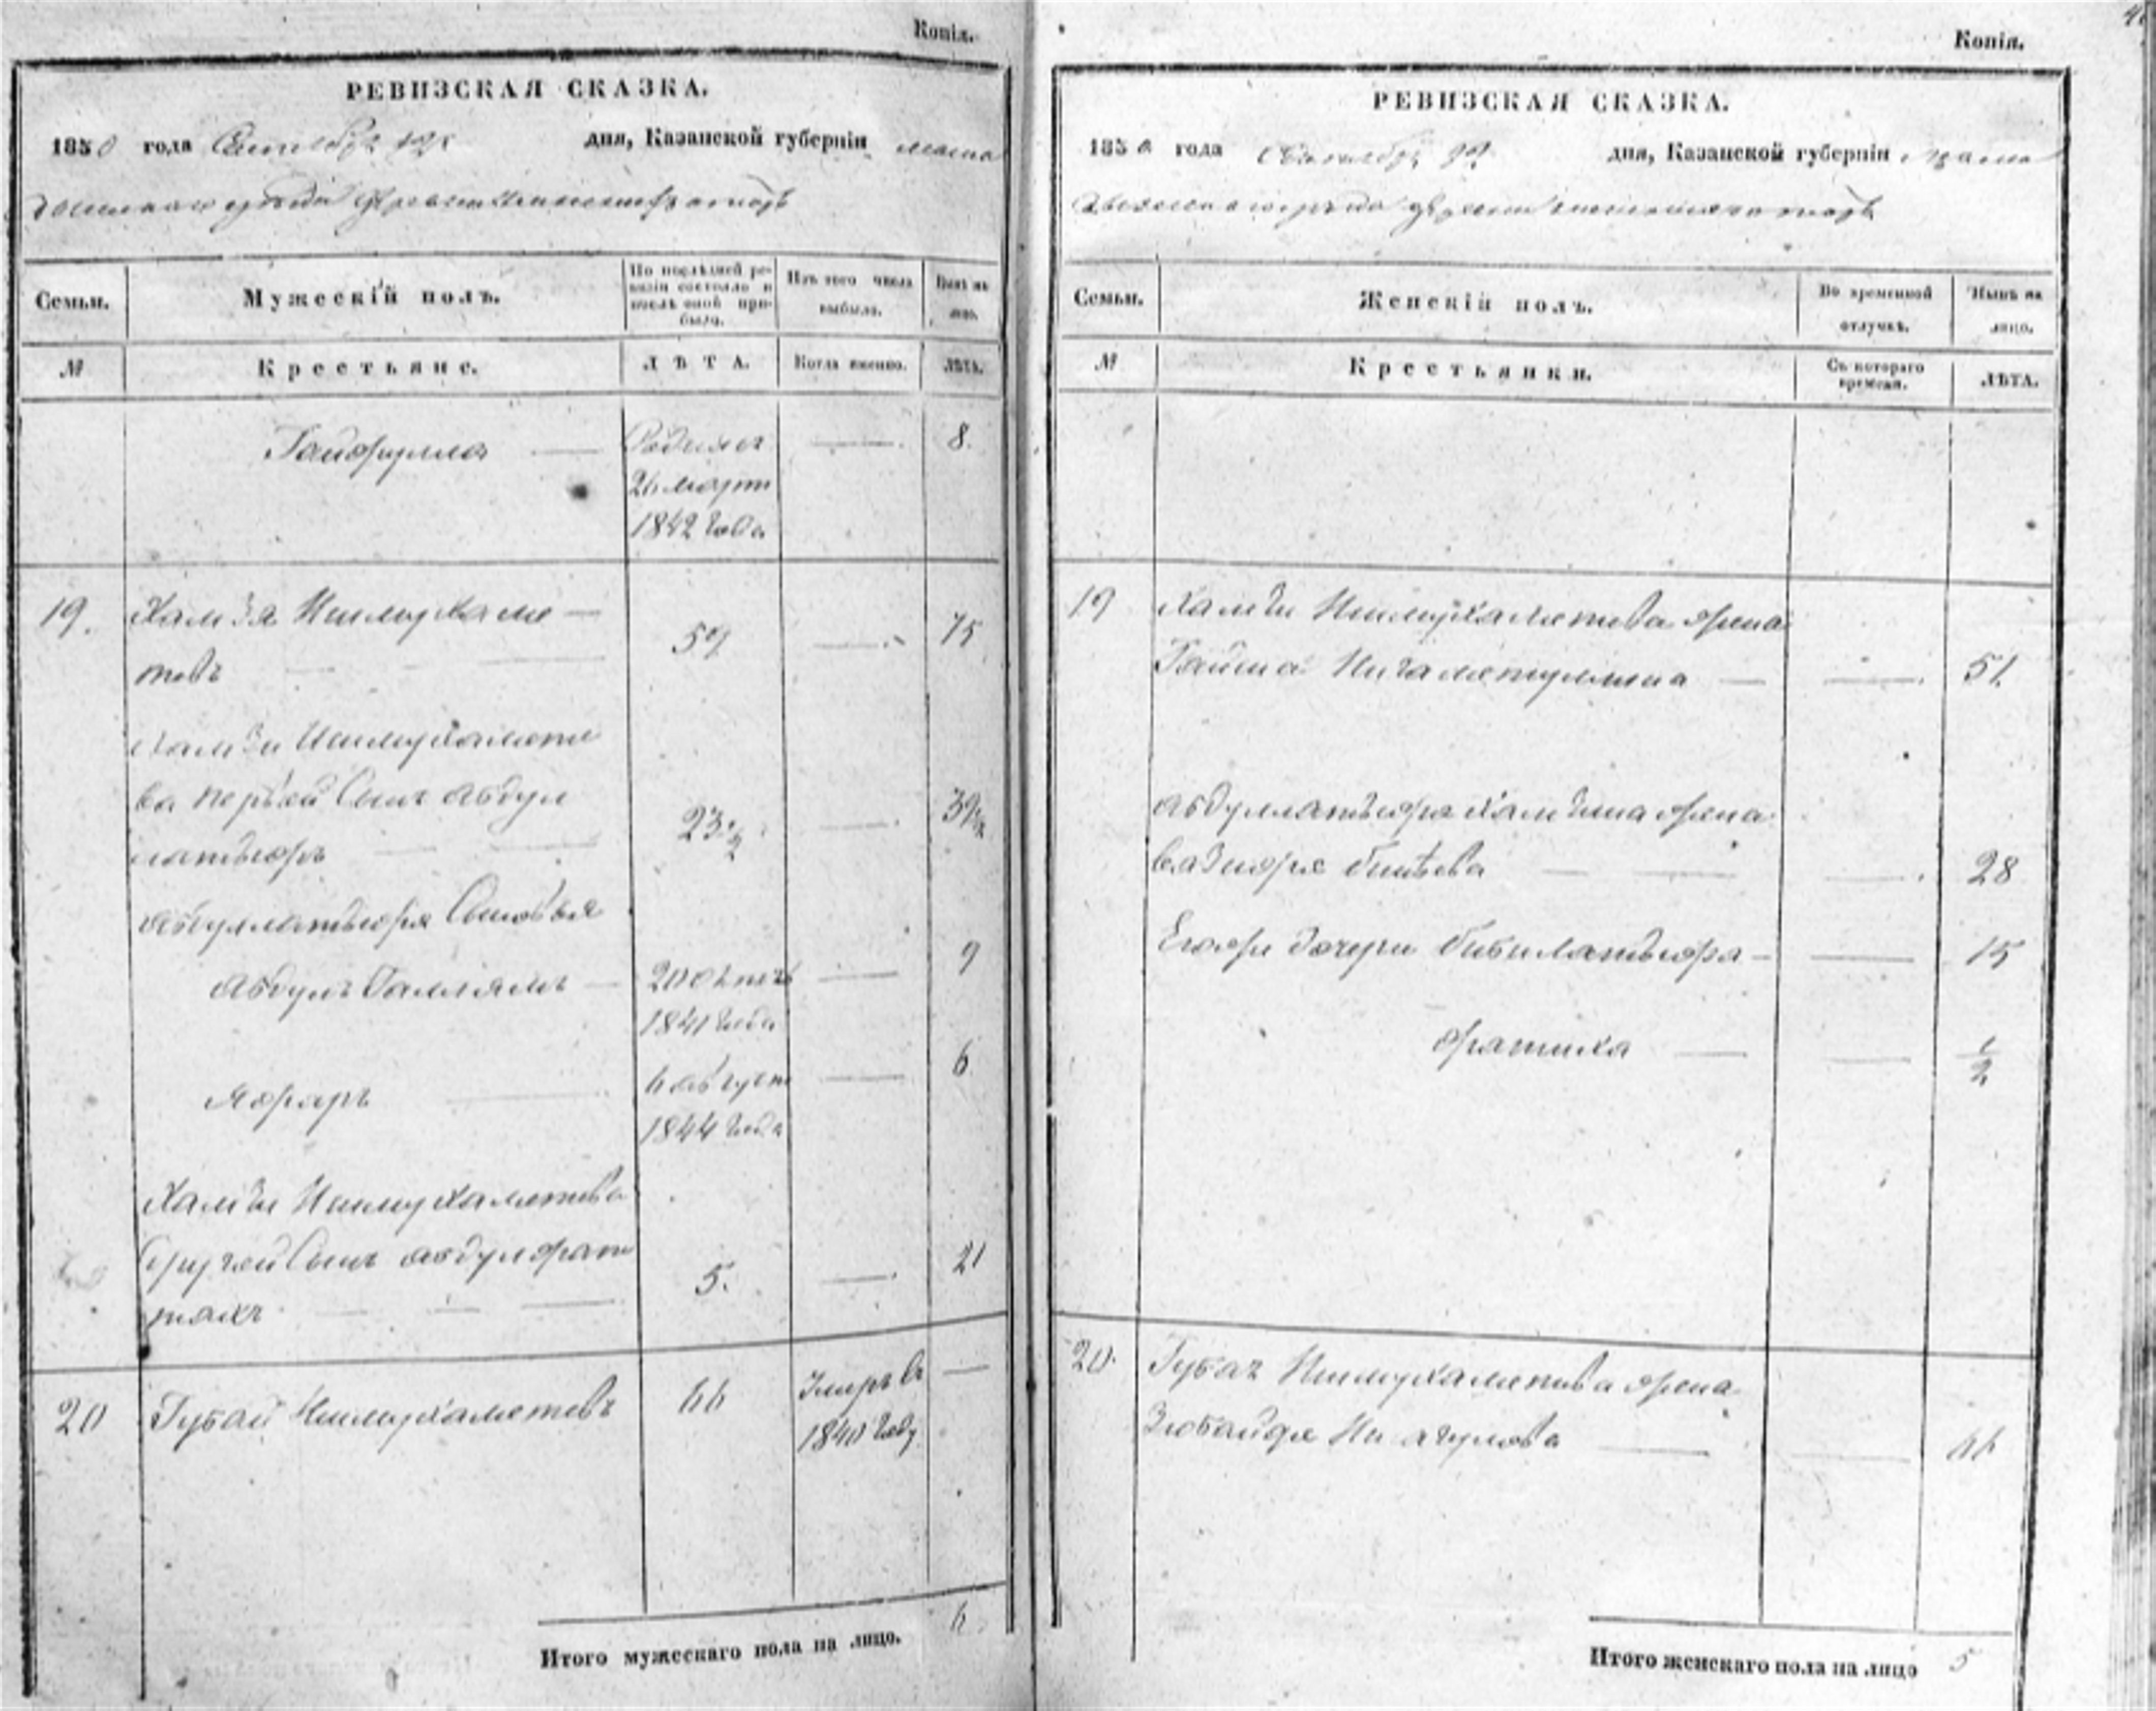 Копія.
РЕВИЗСКАЯ СКАЗКА.
1850 года дня, Казанской губерніи
Семьи.
Мужескій полъ.
По послѣдней ре-
визіи состояло и
послѣ оной при-
было.
Изъ того числа
выбыло.
Нынѣ на
лицо.
№
Крестьяне.
ЛѢТА.
Когда именно.
ЛѢТА.
Гайфулла — Родился — 8.
26 март
1842 года
19. Хамзя Ишмухаме — 59 — 75
товъ
Хамзи Ишмухамето
ва первой сынъ Абдул 23 1/2 — 39 1/2
латыфъ
Абдуллатыфа Сыновья
Абдулъ Галлямъ — 20 — 9
1841 года
Яфаръ 6 август — 6
1844 года
Хамзи Ишмухаметова
другой сынъ Абдулфат 5. — 21
тахъ
20 Губай Ишмухаметовъ 66 Умръ въ —
1840 году
6.
Итого мужескаго пола на лицо.
Копія.
РЕВИЗСКАЯ СКАЗКА.
1850 года дня, Казанской губерніи
Семьи.
Женскій полъ.
Во временной
отлучкѣ.
Нынѣ на
лицо.
№
Крестьянки.
Съ котораго
времени.
ЛѢТА.
19 Хамзи Ишмухаметова жена
Гайша Нигаметуллина — 51.
Абдуллатыфа Хамзина жена
— 28
Егожъ дочери Бибилатыфа — 15
Фатиха — 1/2
20. Губая Ишмухаметова жена
Зюбайда — 66
Итого женскаго пола на лицо 5